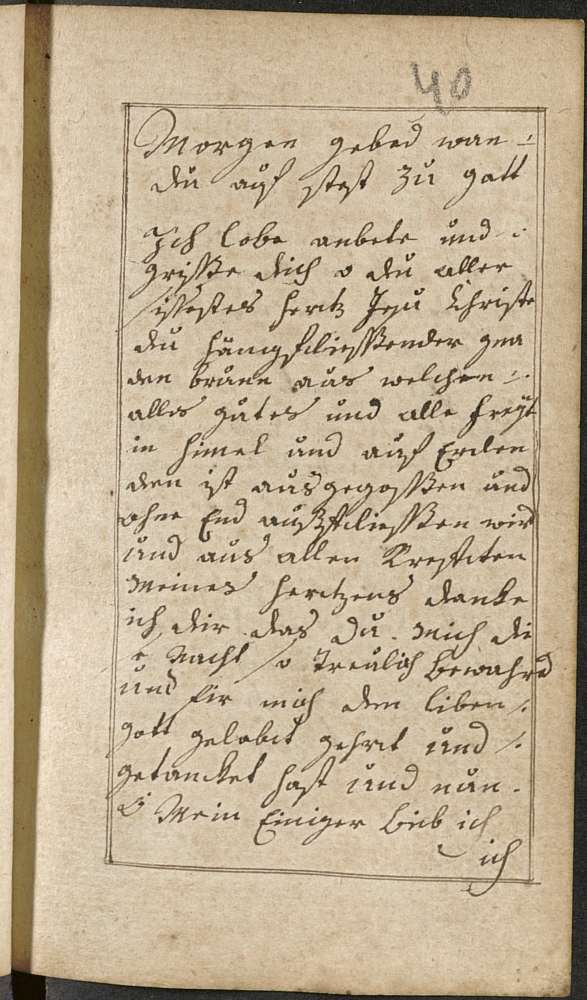 40
Morgen gebed wan
du auf stest zu gott
Ich lobe anbete und
grisße dich o du aller
sisestes hertz Jesu Christe
du hönigfliesßender gna
den brunn aus welchen
alles gutes und alle freyt
in himel und auf Erden
den ist ausgegosßen und
ohne End außfliesßen wird
und aus allen Kreften
Meines hertzens danke
ich dir das Du Mich di
e Nacht so Treulich bewahrd
und fir mich den liben
gott gelobet gehrt und
getancket hast und nun
O Mein Einiger Lieb ich
ich